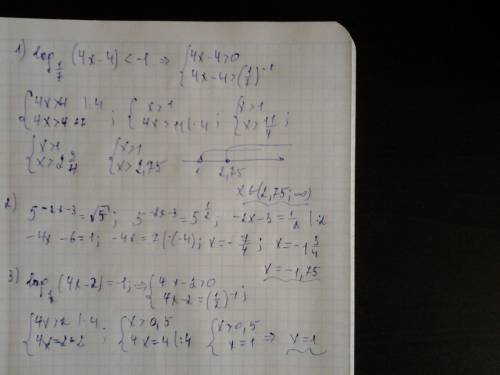 1) log_{1/7} (4x-4) < -1 ⇒ { 4x-4>0
4x-4>(1/7)^{-1}
{ 4x>4 |:4
4x>4+7 ; { x>1
4x>11 |:4 ; { x>1
x>11/4 ;
{ x>1
x>2 3/4 { x>1
x>2,75 1 2,75
x∈(2,75; ∞)
2) 5^{-2x-3}=√5 ; 5^{-2x-3}=5^{1/2} ; -2x-3=1/2 |·2
-4x-6=1; -4x=7 |:(-4); x=-7/4 ; x=-1 3/4
x=-1,75
3) log_{1/2} (4x-2)=-1; ⇒ { 4x-2>0
4x-2=(1/2)^{-1} ;
{ 4x>2 |:4
4x=2+2 ; { x>0,5
4x=4 |:4 { x>0,5
x=1 ⇒ x=1